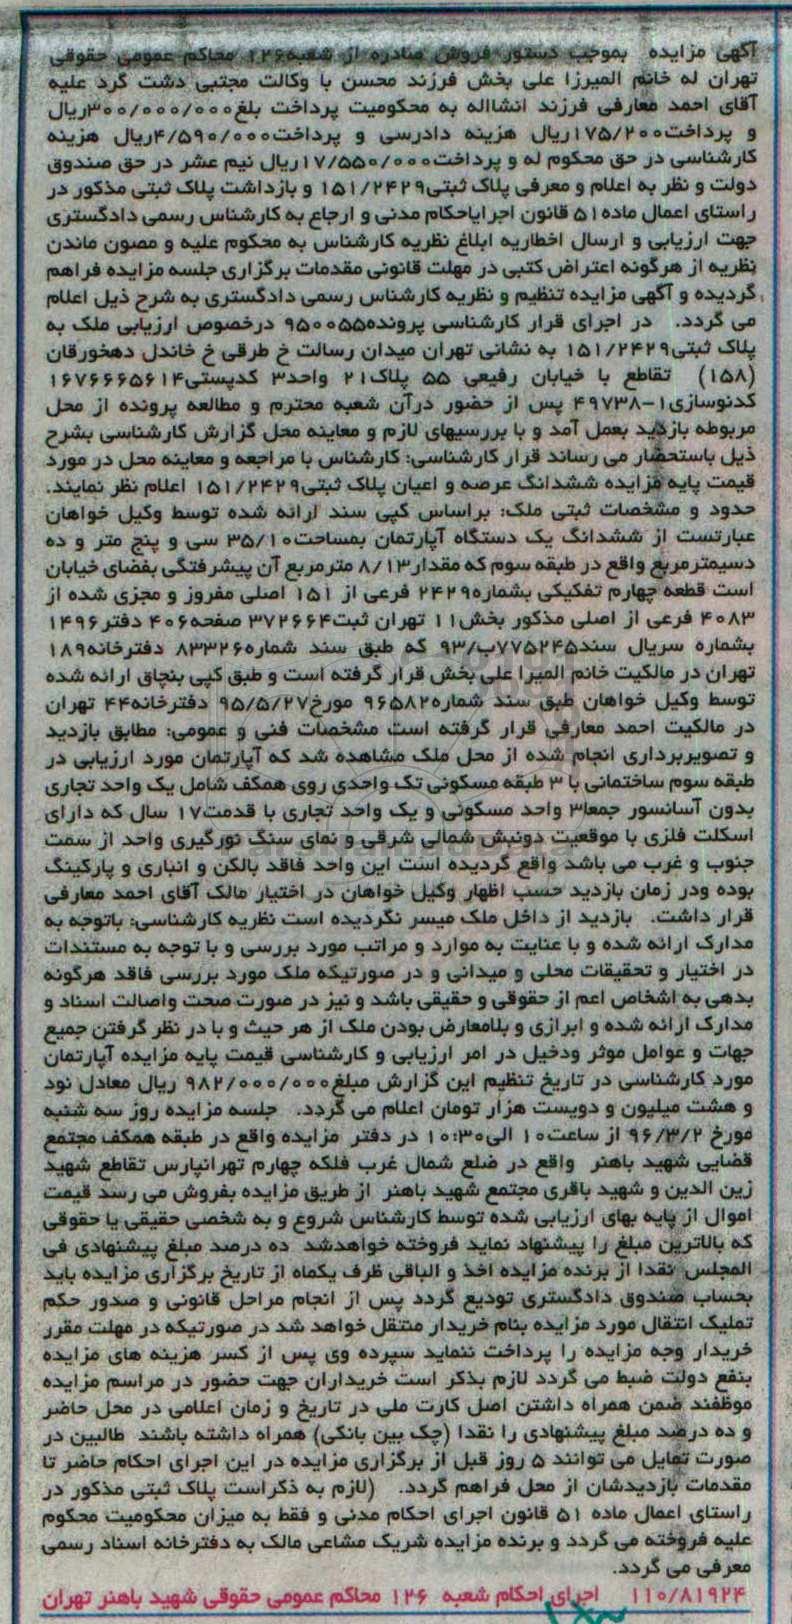 آگهی مزایده بموجب دستور فروش صادره از شعبه۱۲۶ محاکم عمومی حقوقی
تهران له خانم المیرزا علی بخش فرزند محسن با وکالت مجتبی دشت گرد علیه
آقای احمد معارفی فرزند انشااله به محکومیت پرداخت بلغ۳۰۰/۰۰۰/۰۰۰ریال
و پرداخت۱۷۵/۲۰۰ریال هزینه دادرسی و پرداخت۴/۵۹۰/۰۰۰ریال هزینه
کارشناسی در حق محکوم له و پرداخت۱۷/۵۵۰/۰۰۰ریال نیم عشر در حق صندوق
دولت و نظر به اعلام و معرفی پلاک ثبتی۱۵۱/۲۴۲۹ و بازداشت پلاک ثبتی مذکور در
راستای اعمال ماده۵۱ قانون اجرایاحکام مدنی و ارجاع به کارشناس رسمی دادگستری
جهت ارزیابی و ارسال اخطاریه ابلاغ نظریه کارشناس به محکوم علیه و مصون ماندن
نظریه از هرگونه اعتراض کتبی در مهلت قانونی مقدمات برگزاری جلسه مزایده فراهم
گردیده و آگهی مزایده تنظیم و نظریه کارشناس رسمی دادگستری به شرح ذیل اعلام
می گردد. در اجرای قرار کارشناسی پرونده۹۵۰۰۵۵ درخصوص ارزیابی ملک به
پلاک ثبتی۱۵۱/۲۴۲۹ به نشانی تهران میدان رسالت خ طرقی خ خاندل دهخورقان
(۱۵۸) تقاطع با خیابان رفیعی ۵۵ پلاک۲۱ واحد۳ کدپستی۱۶۷۶۶۶۵۶۱۴
کدنوسازی۱-۴۹۷۳۸ پس از حضور درآن شعبه محترم و مطالعه پرونده از محل
مربوطه بازدید بعمل آمد و با بررسیهای لازم و معاینه محل گزارش کارشناسی بشرح
ذیل باستحضار می رساند قرار کارشناسی: کارشناس با مراجعه و معاینه محل در مورد
قیمت پایه مزایده ششدانگ عرصه و اعیان پلاک ثبتی۱۵۱/۲۴۲۹ اعلام نظر نمایند.
حدود و مشخصات ثبتی ملک: براساس کپی سند ارائه شده توسط وکیل خواهان
عبارتست از ششدانگ یک دستگاه آپارتمان بمساحت۳۵/۱۰ سی و پنج متر و ده
دسیمترمربع واقع در طبقه سوم که مقدار۸/۱۳ مترمربع آن پیشرفتگی بفضای خیابان
است قطعه چهارم تفکیکی بشماره۲۴۲۹ فرعی از ۱۵۱ اصلی مفروز و مجزی شده از
۴۰۸۳ فرعی از اصلی مذکور بخش۱۱ تهران ثبت۳۷۲۶۶۴ صفحه۴۰۶ دفتر۱۴۹۶
بشماره سریال سند۷۷۵۲۴۵ب/۹۳ که طبق سند شماره۸۳۳۲۶ دفترخانه۱۸۹
تهران در مالکیت خانم المیرا علی بخش قرار گرفته است و طبق کپی بنچاق ارائه شده
توسط وکیل خواهان طبق سند شماره۹۶۵۸۲ مورخ۹۵/۵/۲۷ دفترخانه۴۴ تهران
در مالکیت احمد معارفی قرار گرفته است مشخصات فنی و عمومی: مطابق بازدید
و تصویربرداری انجام شده از محل ملک مشاهده شد که آپارتمان مورد ارزیابی در
طبقه سوم ساختمانی با ۳ طبقه مسکونی تک واحدی روی همکف شامل یک واحد تجاری
بدون آسانسور جمعا۳ واحد مسکونی و یک واحد تجاری با قدمت۱۷ سال که دارای
اسکلت فلزی با موقعیت دونبش شمالی شرقی و نمای سنگ نورگیری واحد از سمت
جنوب و غرب می باشد واقع گردیده است این واحد فاقد بالکن و انباری و پارکینگ
بوده ودر زمان بازدید حسب اظهار وکیل خواهان در اختیار مالک آقای احمد معارفی
قرار داشت. بازدید از داخل ملک میسر نگردیده است نظریه کارشناسی: باتوجه به
مدارک ارائه شده و با عنایت به موارد و مراتب مورد بررسی و با توجه به مستندات
در اختیار و تحقیقات محلی و میدانی و در صورتیکه ملک مورد بررسی فاقد هرگونه
بدهی به اشخاص اعم از حقوقی و حقیقی باشد و نیز در صورت صحت واصالت اسناد و
مدارک ارائه شده و ابرازی و بلامعارض بودن ملک از هر حیث و با در نظر گرفتن جمیع
جهات و عوامل موثر ودخیل در امر ارزیابی و کارشناسی قیمت پایه مزایده آپارتمان
مورد کارشناسی در تاریخ تنظیم این گزارش مبلغ۹۸۲/۰۰۰/۰۰۰ ریال معادل نود
و هشت میلیون و دویست هزار تومان اعلام می گردد. جلسه مزایده روز سه شنبه
مورخ ۹۶/۳/۲ از ساعت۱۰ الی۱۰:۳۰ در دفتر مزایده واقع در طبقه همکف مجتمع
قضایی شهید باهنر واقع در ضلع شمال غرب فلکه چهارم تهرانپارس تقاطع شهید
زین الدین و شهید باقری مجتمع شهید باهنر از طریق مزایده بفروش می رسد قیمت
اموال از پایه بهای ارزیابی شده توسط کارشناس شروع و به شخصی حقیقی یا حقوقی
که بالاترین مبلغ را پیشنهاد نماید فروخته خواهدشد ده درصد مبلغ پیشنهادی فی
المجلس نقدا از برنده مزایده اخذ و الباقی ظرف یکماه از تاریخ برگزاری مزایده باید
بحساب صندوق دادگستری تودیع گردد پس از انجام مراحل قانونی و صدور حکم
تملیک انتقال مورد مزایده بنام خریدار منتقل خواهد شد در صورتیکه در مهلت مقرر
خریدار وجه مزایده را پرداخت ننماید سپرده وی پس از کسر هزینه های مزایده
بنفع دولت ضبط می گردد لازم بذکر است خریداران جهت حضور در مراسم مزایده
موظفند ضمن همراه داشتن اصل کارت ملی در تاریخ و زمان اعلامی در محل حاضر
و ده درصد مبلغ پیشنهادی را نقدا (چک بین بانکی) همراه داشته باشند طالبین در
صورت تمایل می توانند ۵ روز قبل از برگزاری مزایده در این اجرای احکام حاضر تا
مقدمات بازدیدشان از محل فراهم گردد. (لازم به ذکراست پلاک ثبتی مذکور در
راستای اعمال ماده ۵۱ قانون اجرای احکام مدنی و فقط به میزان محکومیت محکوم
علیه فروخته می گردد و برنده مزایده شریک مشاعی مالک به دفترخانه اسناد رسمی
معرفی می گردد.
۱۱۰/۸۱۹۲۴ اجرای احکام شعبه ۱۲۶ محاکم عمومی حقوقی شهید باهنر تهران